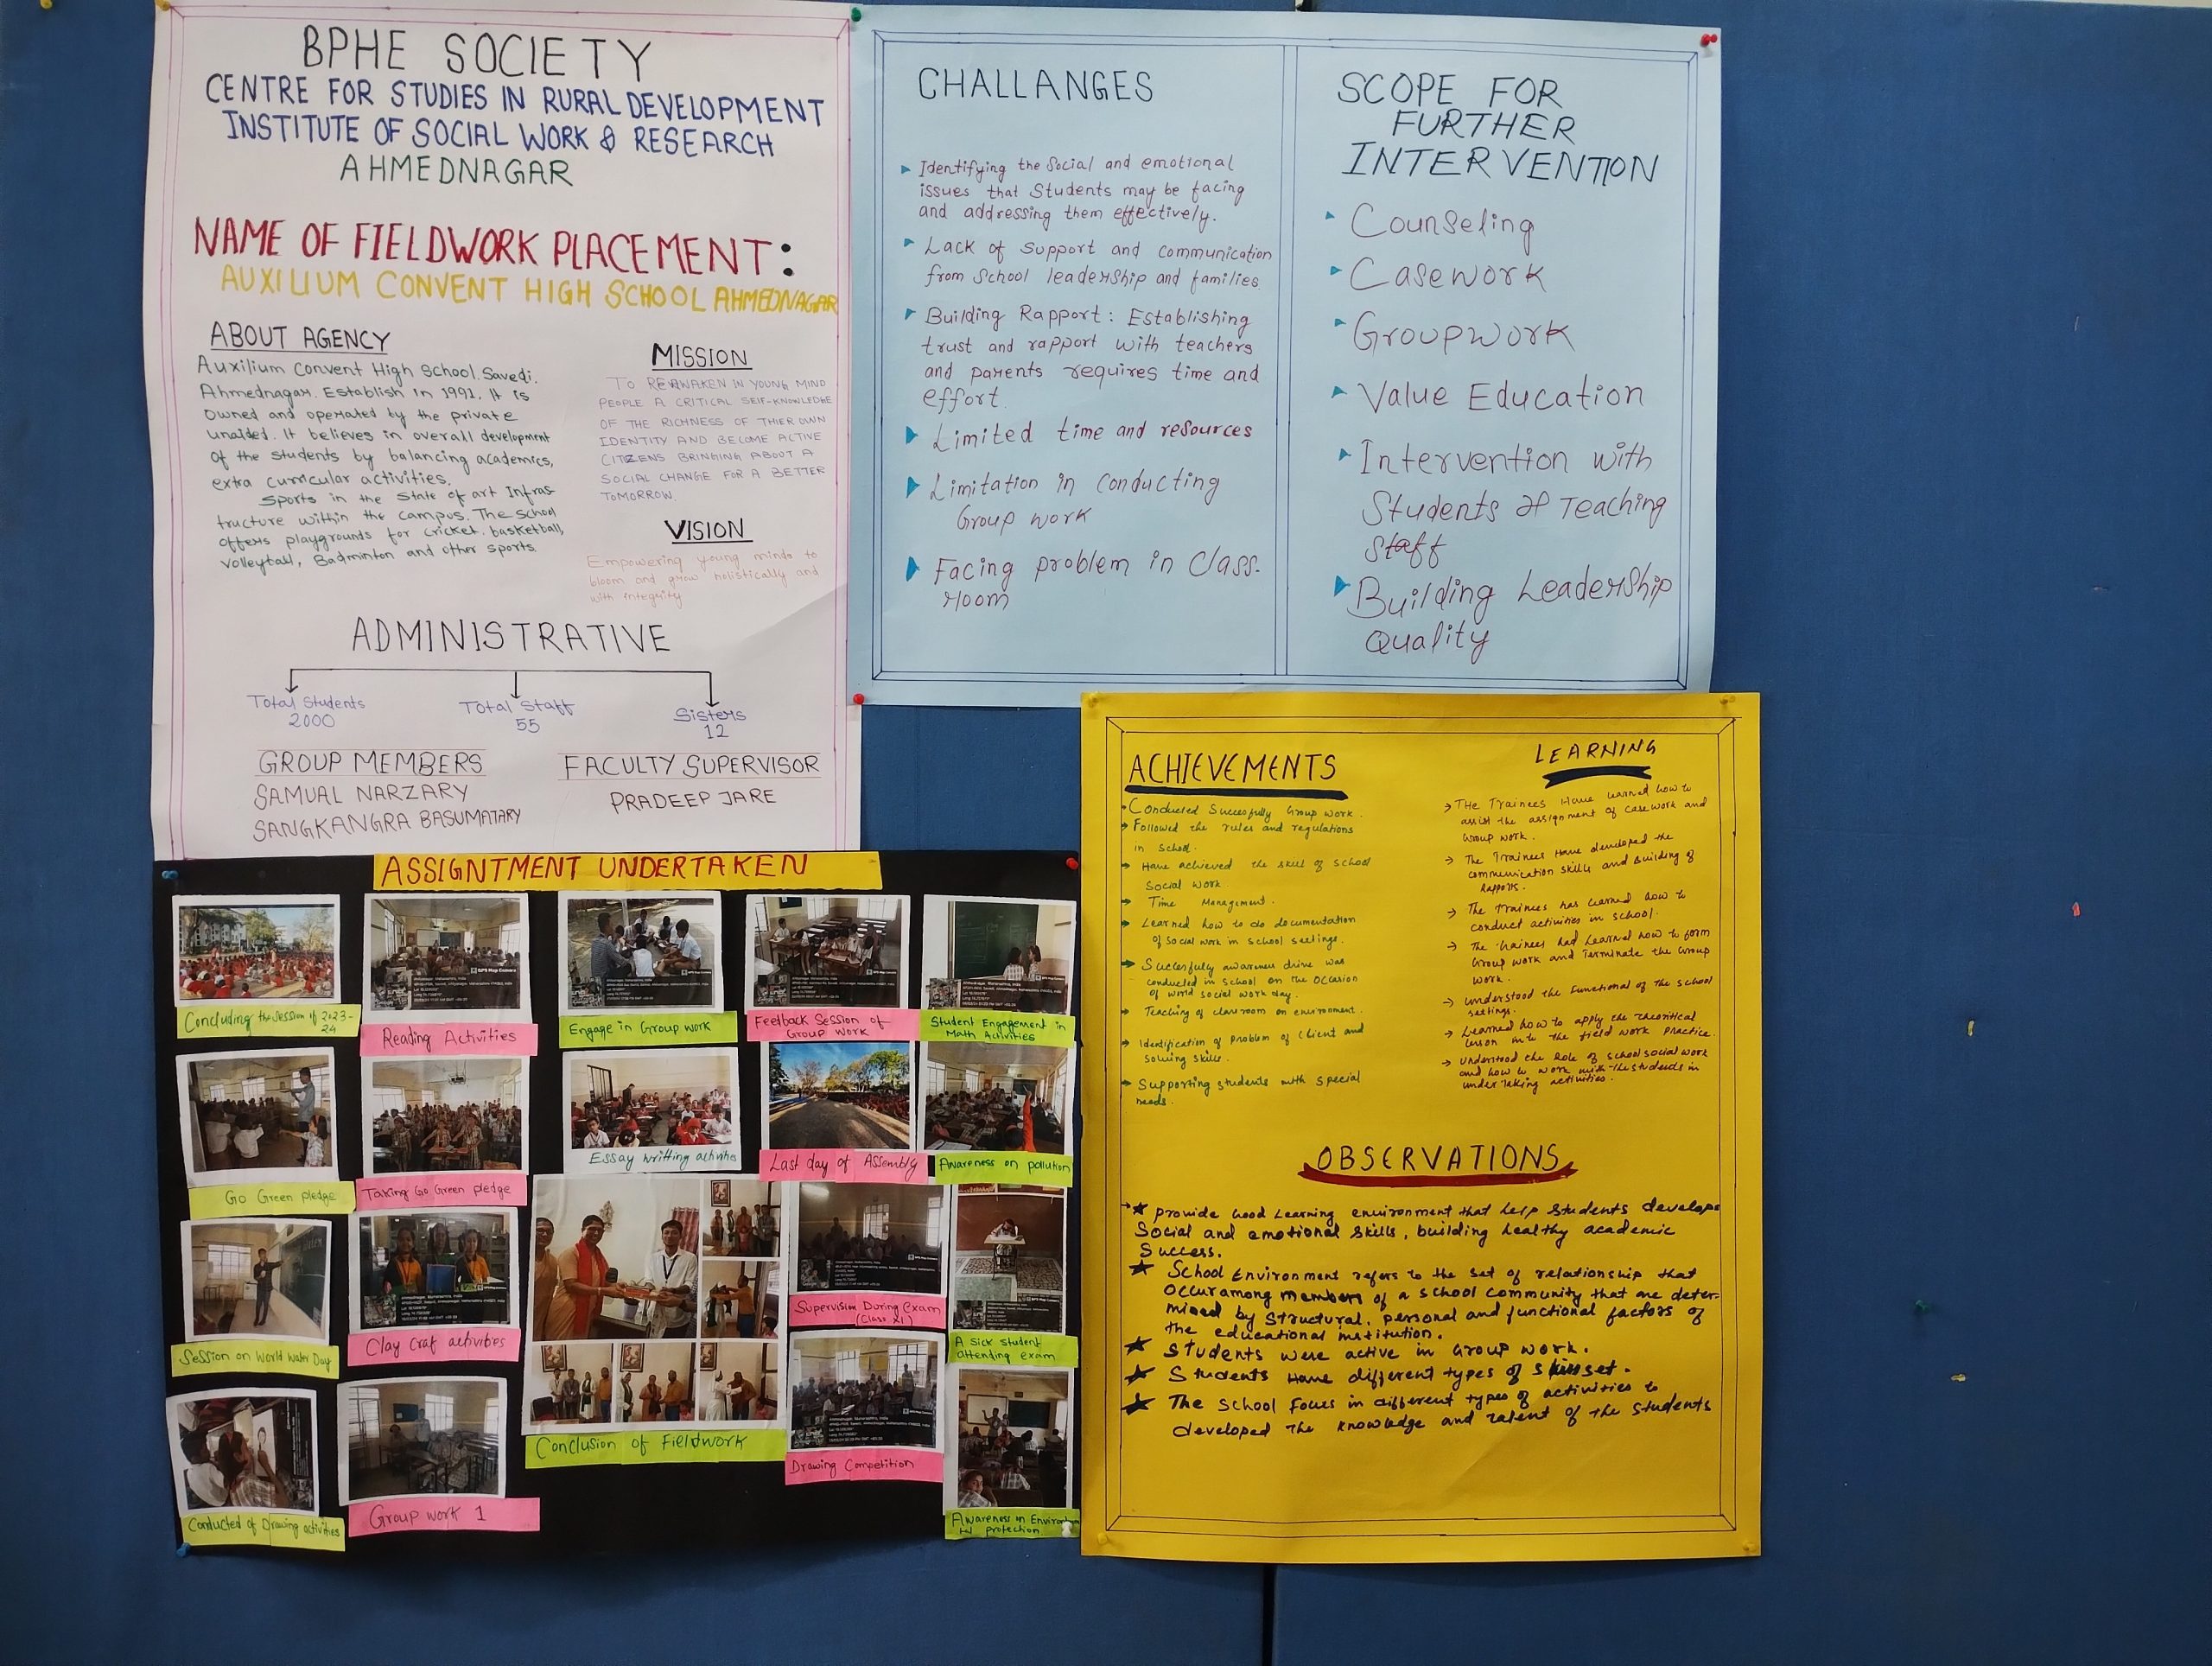 BPHE SOCIETY
CENTRE FOR STUDIES IN RURAL DEVELOPMENT
INSTITUTE OF SOCIAL WORK & RESEARCH
AHMEDNAGAR
NAME OF FIELDWORK PLACEMENT:
AUXILIUM CONVENT HIGH SCHOOL AHMEDNAGAR
ABOUT AGENCY
Auxilium Convent High School. Savedi.
Ahmednagar. Establish in 1991. It is
Owned and operated by the private
unaided. It believes in overall development
of the students by balancing academics,
extra curricular activities.
Sports in the State of art Infras-
tructure within the campus. The School
offers playgrounds for cricket. basketball,
Volleyball, Badminton and other sports.
MISSION
TO REAWAKEN IN YOUNG MIND
PEOPLE A CRITICAL SELF-KNOWLEDGE
OF THE RICHNESS OF THIER OWN
IDENTITY AND BECOME ACTIVE
CITIZENS BRINGING ABOUT A
SOCIAL CHANGE FOR A BETTER
TOMORROW.
VISION
Empowering young minds to
bloom and grow holistically and
with integrity
ADMINISTRATIVE
Total Students
2000
Total Staff
55
Sisters
12
GROUP MEMBERS
SAMUAL NARZARY
SANGKANGRA BASUMATARY
FACULTY SUPERVISOR
PRADEEP JARE
CHALLANGES
Identifying the Social and emotional
issues that Students may be facing
and addressing them effectively.
Lack of support and communication
from School leadership and families.
Building Rapport: Establishing
trust and rapport with teachers
and parents requires time and
effort.
Limited time and resources
Limitation in conducting
Group work
Facing problem in Class-
room
SCOPE FOR
FURTHER
INTERVENTION
Counseling
Casework
Groupwork
Value Education
Intervention with
Students & Teaching
Staff
Building Leadership
Quality
ASSIGNTMENT UNDERTAKEN
Concluding the Session of 2023-
24
Reading Activities
Engage in Group work
Feedback Session of
Group Work
Student Engagement in
Math Activities
Go Green pledge
Taking Go Green pledge
Essay writting activities
Last day of Assembly
Awareness on pollution
Session on World Water Day
Clay Craf activities
Conclusion of Fieldwork
Supervision During exam
(Class XI)
A sick student
attending exam
Conducted of Drawing activities
Group work 1
Drawing Competition
Awareness on Environ
tal protection
ACHIEVEMENTS
Conducted Succesfully Group work.
Followed the rules and regulations
in School.
Have achieved the skill of School
Social Work.
Time Management.
Learned how to do documentation
of Social work in school seetings.
Succesfully awareness drive was
conducted in school on the occasion
of world social work day.
Teaching of classroom on environment.
Identification of problem of Client and
Solving skills.
Supporting students with special
needs.
LEARNING
The Trainees Have learned how to
assist the assignment of casework and
Group work.
The Trainees Have developed the
communication skills and Building of
Rapport.
The Trainees has learned how to
conduct activities in school.
The trainees had Learned how to form
Group work and Terminate the Group
work.
understood the functional of the school
seetings.
Learned how to apply the theoritical
lesson into the field work practice.
understood the Role of school social work
and how to work with the students in
under taking activities.
OBSERVATIONS
Provide Good Learning environment that help students develope
Social and emotional skills, building healthy academic
Success.
School Environment refers to the set of relationship that
Occur among members of a school community that are deter-
mined by structural, personal and functional factors of
the educational institution.
Students were active in Group work.
Students Have different types of skillset.
The school focus in different types of activities to
developed the knowledge and talent of the students